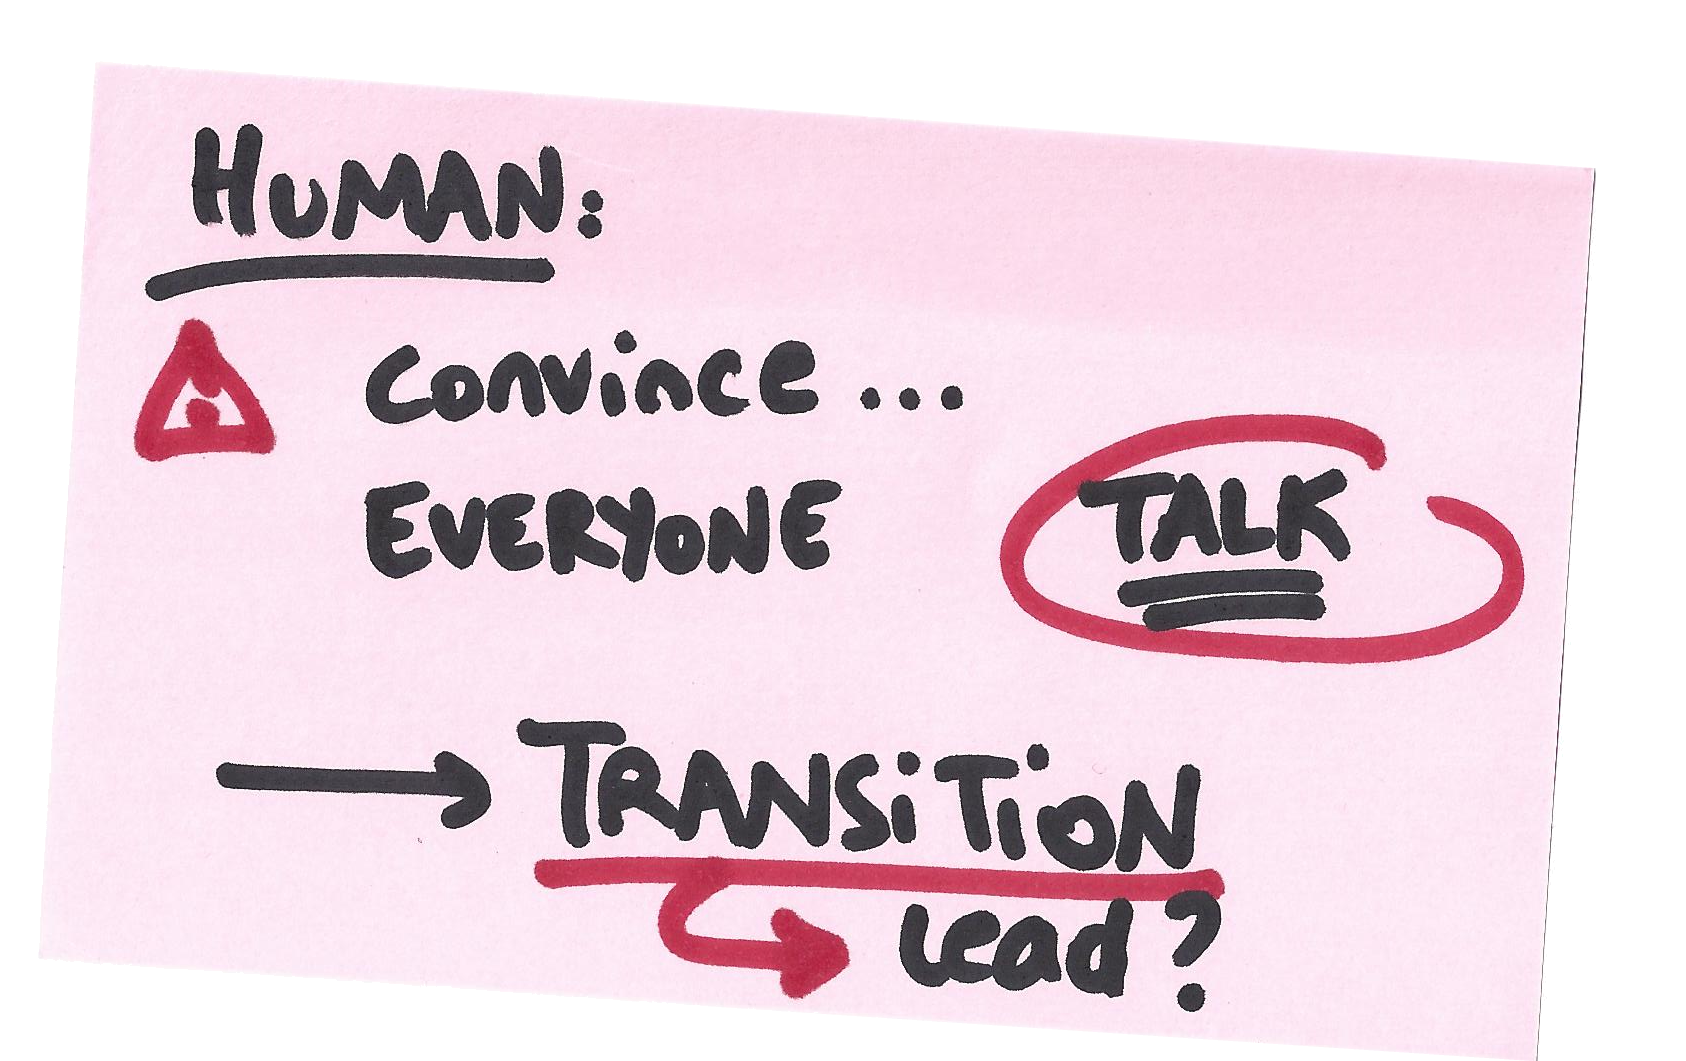 HUMAN:
convince...
EVERYONE
TALK
→ TRANSiTiON
lead?